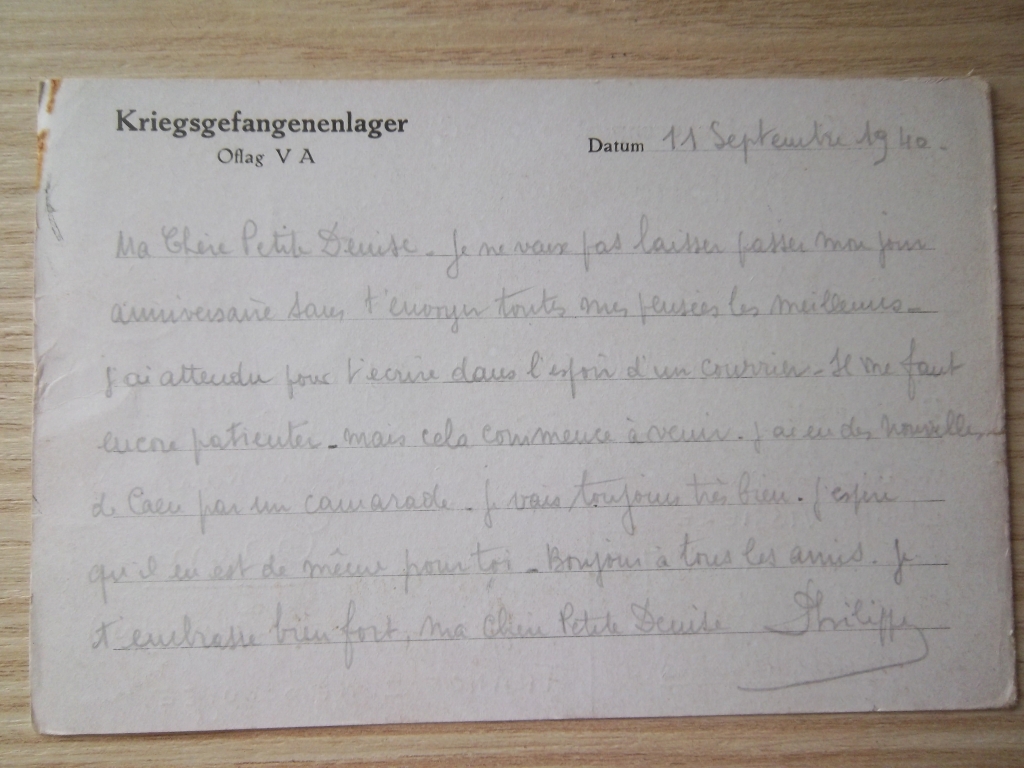 Kriegsgefangenenlager
Oflag V A
Datum 11 Septembre 1940.
Ma Chère Petite Denise. Je ne veux pas laisser passer mon jour
anniversaire sans t'envoyer toutes mes pensées les meilleures.
J'ai attendu pour t'écrire dans l'espoir d'un courrier. Il me faut
encore patienter. mais cela commence à venir. J'ai eu des nouvelles
de Caen par un camarade. Je vais toujours très bien. J'espère
qu'il en est de même pour toi. Bonjour à tous les amis. Je
t'embrasse bien fort, Ma Chère Petite Denise Philippe